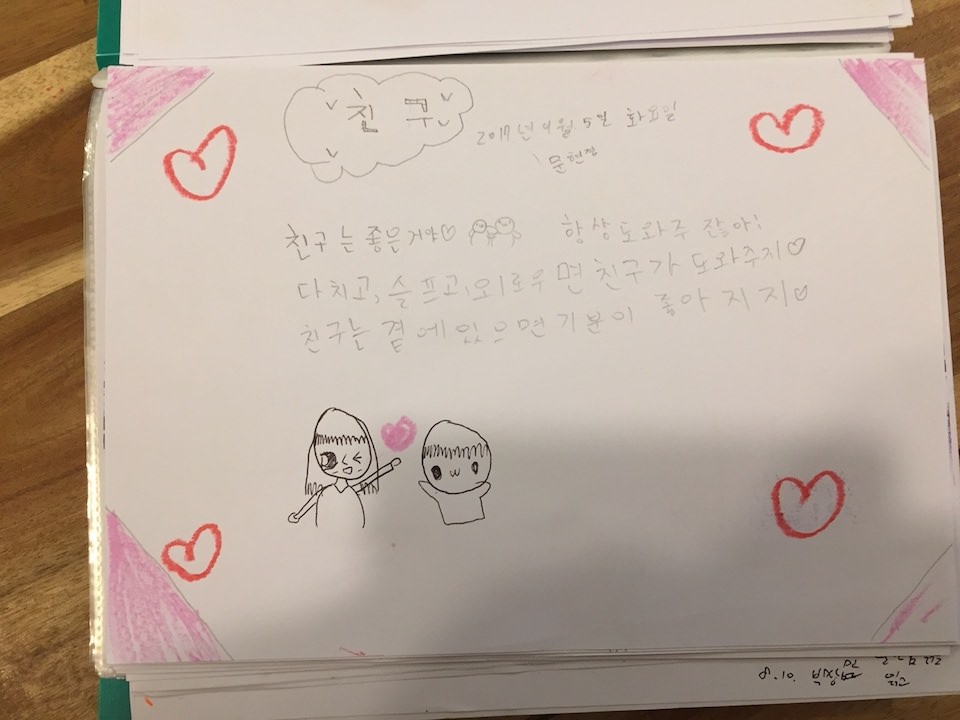 친구
2017년 9월 5일 화요일
문현정
친구는 좋은거야♡ 항상 도와주잖아!
다치고, 슬프고, 외로우면 친구가 도와주지♡
친구는 곁에 있으면 기분이 좋아지지♡
8.10.